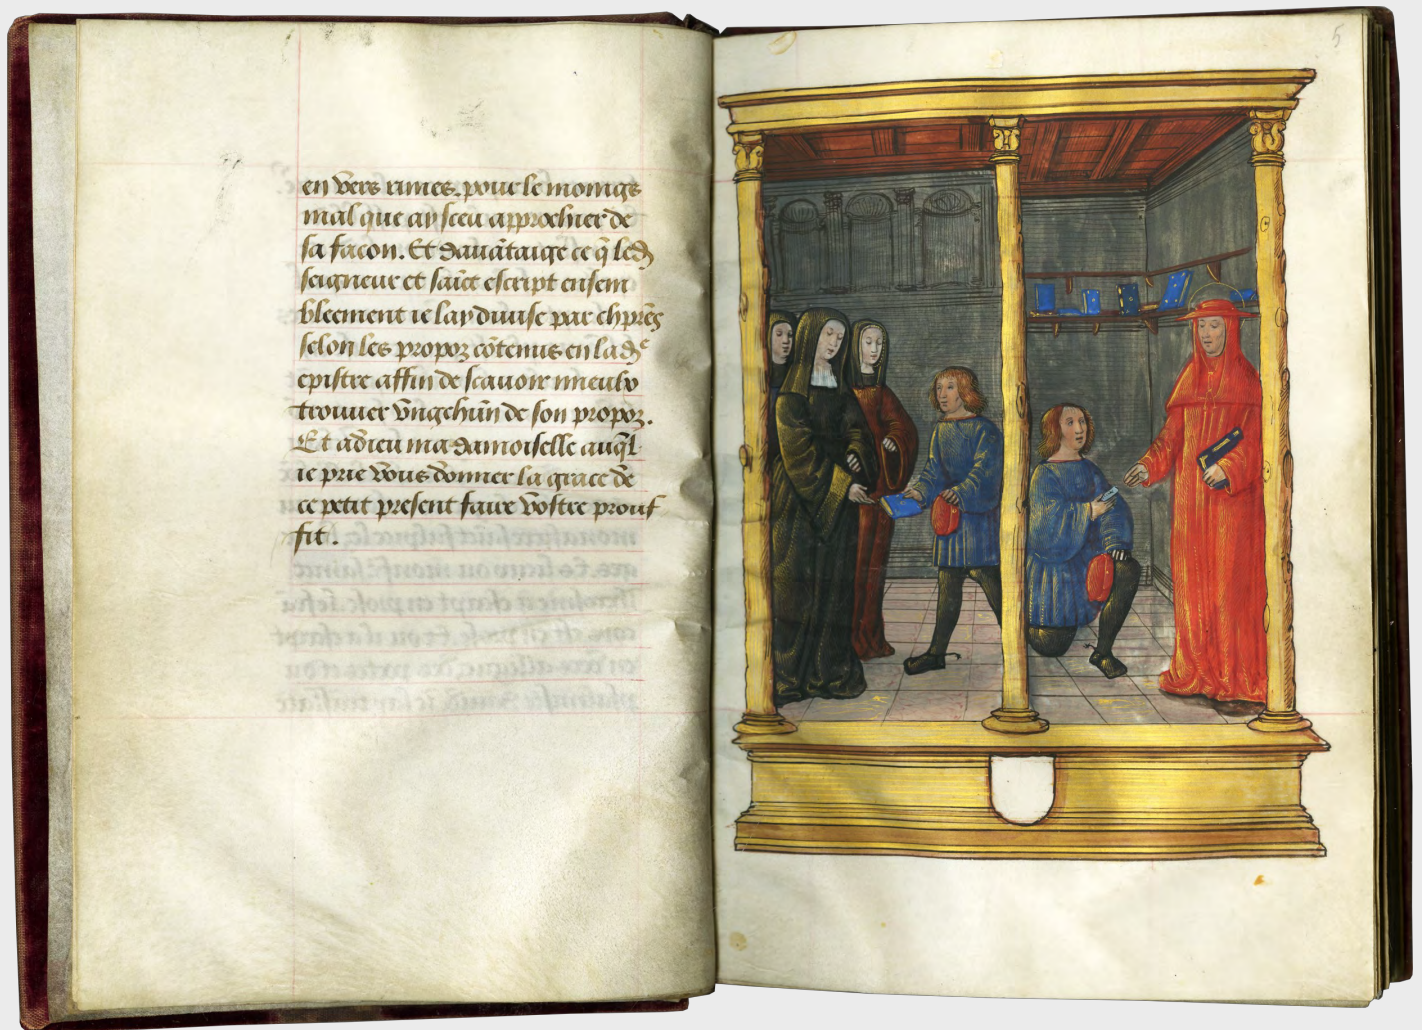 en vers rimes. pour le moings
mal que ay sceu approchier de
sa facon. Et davātaige ce q̄ led̄
seigneur et saīct escript ensem
bleement ie lay divise par chp̄res
selon les propoz cōtenus en la dᵉ
epistre affin de scavoir mieulx
trouver vng chūn de son propoz.
Et adieu ma damoiselle auq̄l
ie prie vous donner la grace de
ce petit present faire vostre prouf
fit.
5